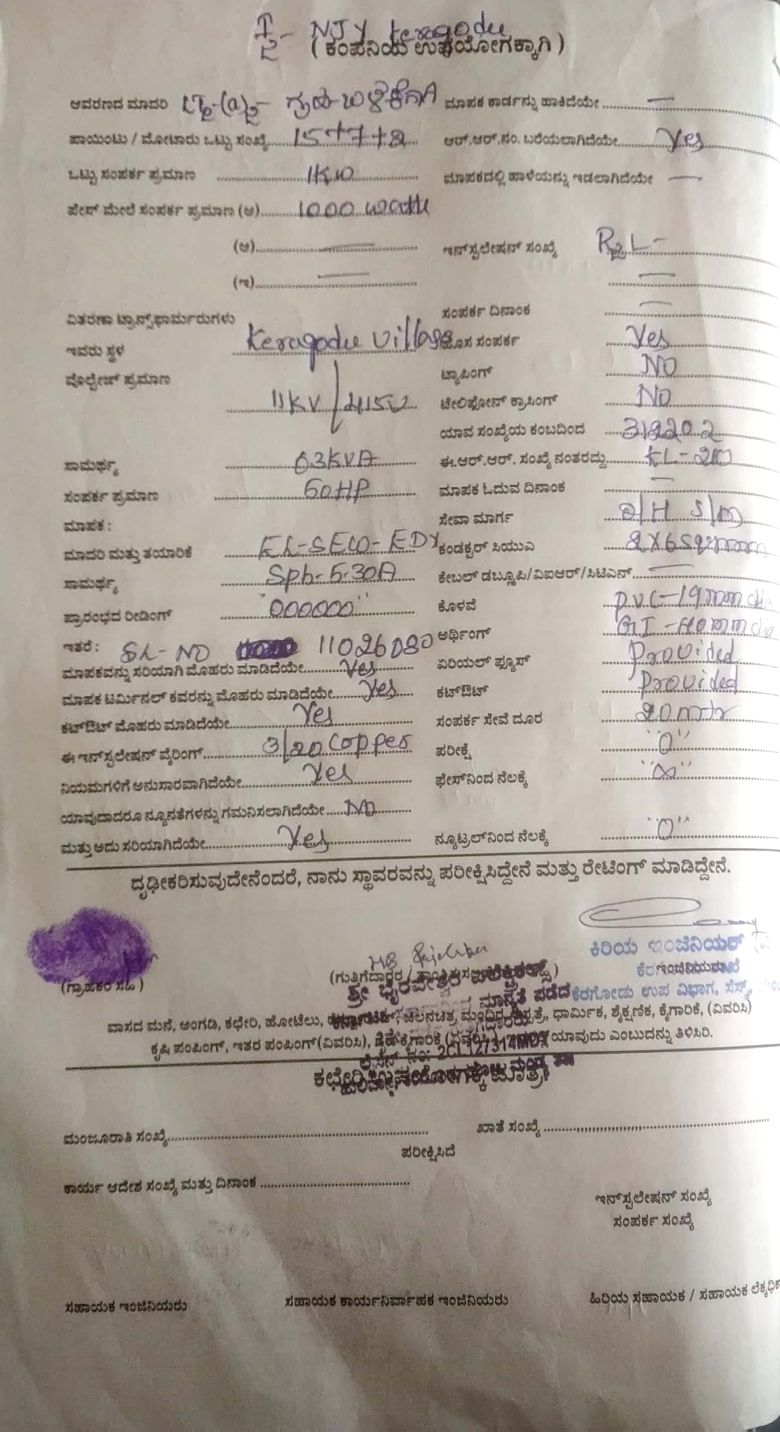 F/2- NJY keragodu
( ಕಂಪನಿಯ ಉಪಯೋಗಕ್ಕಾಗಿ )
ಆವರಣದ ಮಾದರಿ ಗೃಹ ಬಳಕೆಗಾಗಿ ಮಾಪಕ ಕಾರ್ಡನ್ನು ಹಾಕಿದೆಯೇ
ಪಾಯಿಂಟು / ಮೋಟಾರು ಒಟ್ಟು ಸಂಖ್ಯೆ 15+7+2 ಆರ್.ಆರ್.ನಂ. ಬರೆಯಲಾಗಿದೆಯೇ Yes
ಒಟ್ಟು ಸಂಪರ್ಕ ಪ್ರಮಾಣ 1KW ಮಾಪಕದಲ್ಲಿ ಹಾಳೆಯನ್ನು ಇಡಲಾಗಿದೆಯೇ
ಪೇಸ್ ಮೇಲೆ ಸಂಪರ್ಕ ಪ್ರಮಾಣ (ಅ) 1000 watt
(ಆ) ಇನ್‌ಸ್ಟಲೇಷನ್ ಸಂಖ್ಯೆ
(ಇ)
ವಿತರಣಾ ಟ್ರಾನ್ಸ್‌ಫಾರ್ಮರುಗಳು ಸಂಪರ್ಕ ದಿನಾಂಕ
ಇವರು ಸ್ಥಳ Keragodu village ಹೊಸ ಸಂಪರ್ಕ Yes
ವೊಲ್ಟೇಜ್ ಪ್ರಮಾಣ 11KV/415V ಟ್ಯಾಪಿಂಗ್ NO
ಟೇಲಿಫೋನ್ ಕ್ರಾಸಿಂಗ್ NO
ಯಾವ ಸಂಖ್ಯೆಯ ಕಂಬದಿಂದ
ಸಾಮರ್ಥ್ಯ 63KVA ಈ.ಆರ್.ಆರ್. ಸಂಖ್ಯೆ ನಂತರದ್ದು KL-210
ಸಂಪರ್ಕ ಪ್ರಮಾಣ 60HP ಮಾಪಕ ಓದುವ ದಿನಾಂಕ
ಮಾಪಕ : ಸೇವಾ ಮಾರ್ಗ O/H S/m
ಮಾದರಿ ಮತ್ತು ತಯಾರಿಕೆ ಕಂಡಕ್ಟರ್ ಸಿಯುಎ 2X6sqmm
ಸಾಮರ್ಥ್ಯ Sph-5-30A ಕೇಬಲ್ ಡಬ್ಲೂಪಿ/ವಿಐಆರ್/ಸಿಟಿಎಸ್
ಪ್ರಾರಂಭದ ರೀಡಿಂಗ್ "000000" ಕೊಳವೆ P.V.C-19mm
ಇತರೆ : SL-NO 11026080 ಅರ್ಥಿಂಗ್ GI-40mm
ಮಾಪಕವನ್ನು ಸರಿಯಾಗಿ ಮೊಹರು ಮಾಡಿದೆಯೇ Yes ಏರಿಯಲ್ ಫ್ಯೂಸ್ Provided
ಮಾಪಕ ಟರ್ಮಿನಲ್ ಕವರನ್ನು ಮೊಹರು ಮಾಡಿದೆಯೇ Yes ಕಟ್‌ಔಟ್ Provided
ಕಟ್‌ಔಟ್ ಮೊಹರು ಮಾಡಿದೆಯೇ Yes ಸಂಪರ್ಕ ಸೇವೆ ದೂರ 20mtr
ಈ ಇನ್‌ಸ್ಟಲೇಷನ್ ವೈರಿಂಗ್ 3/20 Copper ಪರೀಕ್ಷೆ "0"
ನಿಯಮಗಳಿಗೆ ಅನುಸಾರವಾಗಿದೆಯೇ Yes ಫೇಸ್‌ನಿಂದ ನೆಲಕ್ಕೆ "∞"
ಯಾವುದಾದರೂ ನ್ಯೂನತೆಗಳನ್ನು ಗಮನಿಸಲಾಗಿದೆಯೇ NO
ಮತ್ತು ಅದು ಸರಿಯಾಗಿದೆಯೇ Yes ನ್ಯೂಟ್ರಲ್‌ನಿಂದ ನೆಲಕ್ಕೆ "0"
ದೃಢೀಕರಿಸುವುದೇನೆಂದರೆ, ನಾನು ಸ್ಥಾವರವನ್ನು ಪರೀಕ್ಷಿಸಿದ್ದೇನೆ ಮತ್ತು ರೇಟಿಂಗ್ ಮಾಡಿದ್ದೇನೆ.
ಕಿರಿಯ ಇಂಜಿನಿಯರ್
(ಗ್ರಾಹಕರ ಸಹಿ) (ಗುತ್ತಿಗೆದಾರರ
ಶ್ರೀ ಭೈರವೇಶ್ವರ ಎಲೆಕ್ಟ್ರಿಕಲ್ಸ್
ಮಾನ್ಯತೆ ಪಡೆದ ಕೆರಗೋಡು ಉಪ ವಿಭಾಗ, ಸೆಸ್ಕ್
ವಾಸದ ಮನೆ, ಅಂಗಡಿ, ಕಛೇರಿ, ಹೋಟೆಲು, ಚಲನಚಿತ್ರ ಮಂದಿರ, ಆಸ್ಪತ್ರೆ, ಧಾರ್ಮಿಕ, ಶೈಕ್ಷಣಿಕ, ಕೈಗಾರಿಕೆ, (ವಿವರಿಸಿ)
ಕೃಷಿ ಪಂಪಿಂಗ್, ಇತರ ಪಂಪಿಂಗ್(ವಿವರಿಸಿ), ಯಾವುದು ಎಂಬುದನ್ನು ತಿಳಿಸಿರಿ.
ಕಛೇರಿ ಉಪಯೋಗಕ್ಕೆ ಮಾತ್ರ
ಮಂಜೂರಾತಿ ಸಂಖ್ಯೆ ಖಾತೆ ಸಂಖ್ಯೆ
ಪರೀಕ್ಷಿಸಿದೆ
ಕಾರ್ಯ ಆದೇಶ ಸಂಖ್ಯೆ ಮತ್ತು ದಿನಾಂಕ
ಇನ್‌ಸ್ಟಲೇಷನ್ ಸಂಖ್ಯೆ
ಸಂಪರ್ಕ ಸಂಖ್ಯೆ
ಸಹಾಯಕ ಇಂಜಿನಿಯರು ಸಹಾಯಕ ಕಾರ್ಯನಿರ್ವಾಹಕ ಇಂಜಿನಿಯರು ಹಿರಿಯ ಸಹಾಯಕ / ಸಹಾಯಕ